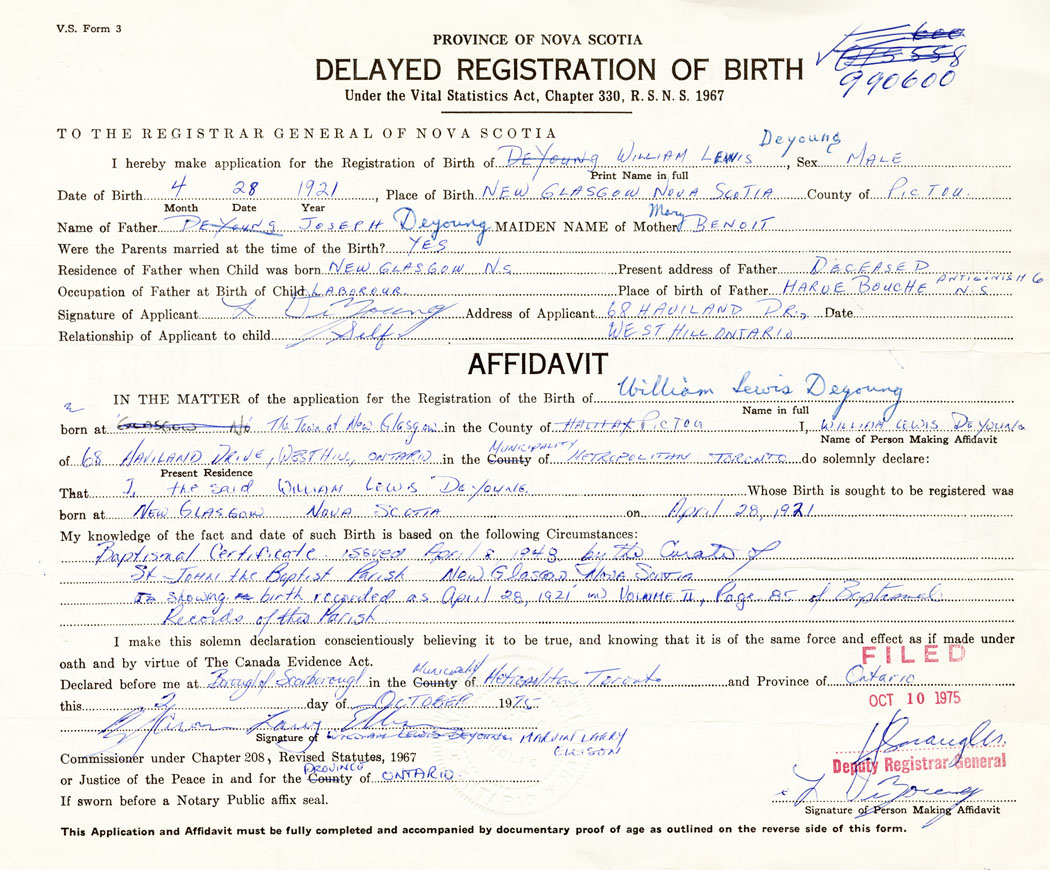 V.S. Form 3
PROVINCE OF NOVA SCOTIA
DELAYED REGISTRATION OF BIRTH
Under the Vital Statistics Act, Chapter 330, R.S.N.S. 1967
600
015558
990600
TO THE REGISTRAR GENERAL OF NOVA SCOTIA
Deyoung
I hereby make application for the Registration of Birth of DeYoung WILLIAM LEWIS, Sex MALE
Print Name in full
Date of Birth 4 28 1921, Place of Birth NEW GLASGOW NOVA SCOTIA County of PICTOU.
Month Date Year
Mary
Name of Father DEYOUNG JOSEPH Deyoung MAIDEN NAME of Mother BENOIT
Were the Parents married at the time of the Birth? YES
Residence of Father when Child was born NEW GLASGOW N.S. Present address of Father DECEASED
Occupation of Father at Birth of Child LABOROUR Place of birth of Father HARVE BOUCHE ANTIGONISH CO N.S.
Signature of Applicant L DeYoung Address of Applicant 68 HAVILAND DR., Date
Relationship of Applicant to child Self WEST HILL ONTARIO
AFFIDAVIT
IN THE MATTER of the application for the Registration of the Birth of William Lewis Deyoung
Name in full
born at GLASGOW N/S The Town of New Glasgow in the County of HALIFAX PICTOU I, WILLIAM LEWIS DEYOUNG
Name of Person Making Affidavit
MUNICIPALITY
of 68 HAVILAND DRIVE, WEST HILL, ONTARIO in the County of METROPOLITAN TORONTO do solemnly declare:
Present Residence
That I, the said WILLIAM LEWIS DEYOUNG. Whose Birth is sought to be registered was
born at NEW GLASGOW NOVA SCOTIA on April 28, 1921
My knowledge of the fact and date of such Birth is based on the following Circumstances:
Baptismal Certificate issued April 8 1948 by the Curate of
St. JOHN the Baptist Parish New Glasgow, Nova Scotia
showing birth recorded as April 28, 1921 in VOLUME II, Page 85 of Baptismal
Records of this Parish
I make this solemn declaration conscientiously believing it to be true, and knowing that it is of the same force and effect as if made under
oath and by virtue of The Canada Evidence Act.
FILED
Municipality
Declared before me at Borough of Scarborough in the County of Metropolitan Toronto and Province of Ontario
this 2 day of OCTOBER 1975
OCT 10 1975
Larry
Signature of WILLIAM LEWIS DEYOUNG MARVIN LARRY ELLISON
Commissioner under Chapter 208, Revised Statutes, 1967
PROVINCE
or Justice of the Peace in and for the County of ONTARIO.
Deputy Registrar General
If sworn before a Notary Public affix seal.
L DeYoung
Signature of Person Making Affidavit
This Application and Affidavit must be fully completed and accompanied by documentary proof of age as outlined on the reverse side of this form.